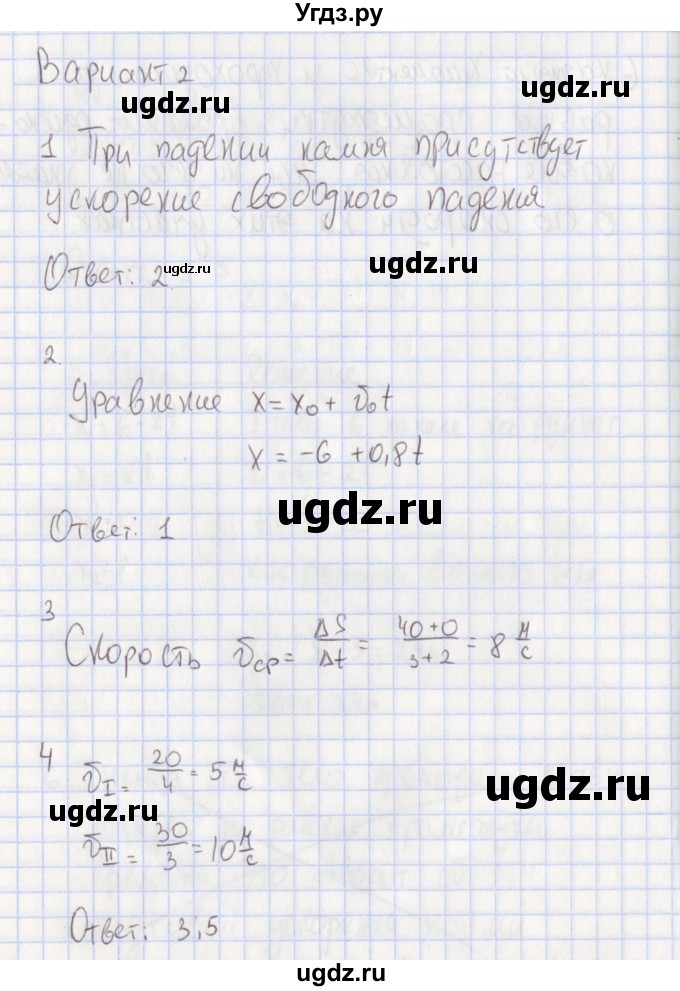 Угдз.ру
Вариант 2
ugdz.ru
1 При падении камня присутствует
ускорение свободного падения
Ответ: 2.
ugdz.ru
ugdz.ru
2.
Уравнение x = x₀ + v₀t
x = -6 + 0,8t
ugdz.ru
Ответ: 1
3
Скорость vср = ΔS/Δt = 40+0/3+2 = 8 м/с
4 vI = 20/4 = 5 м/с
ugdz.ru
ugdz.ru
vII = 30/3 = 10 м/с
Ответ: 3,5
ugdz.ru
ugdz.ru